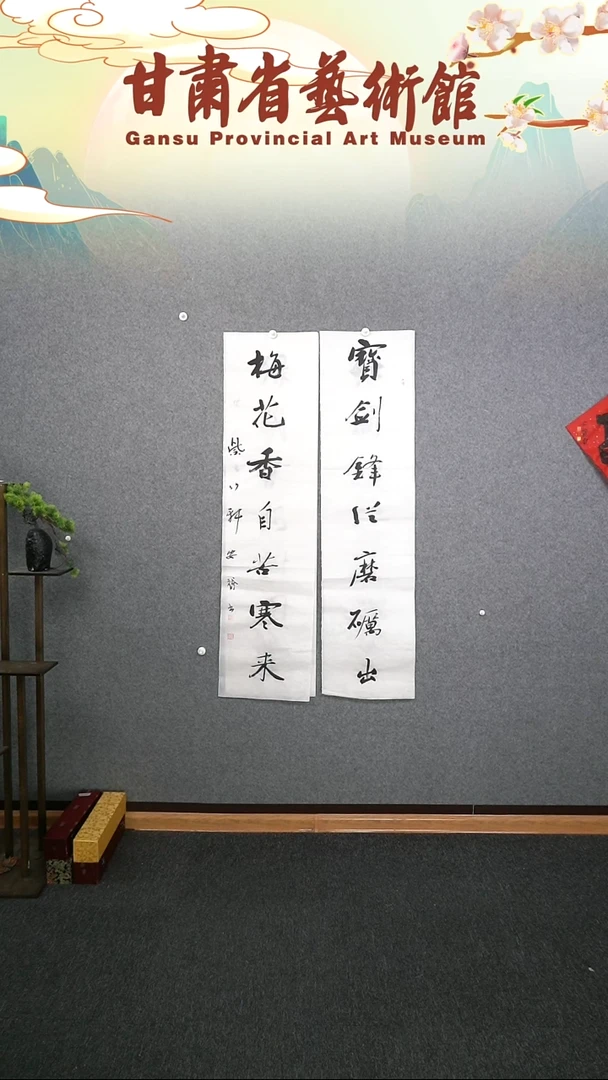 甘肅省藝術館
Gansu Provincial Art Museum
寶劍鋒従磨礪出
梅花香自苦寒来